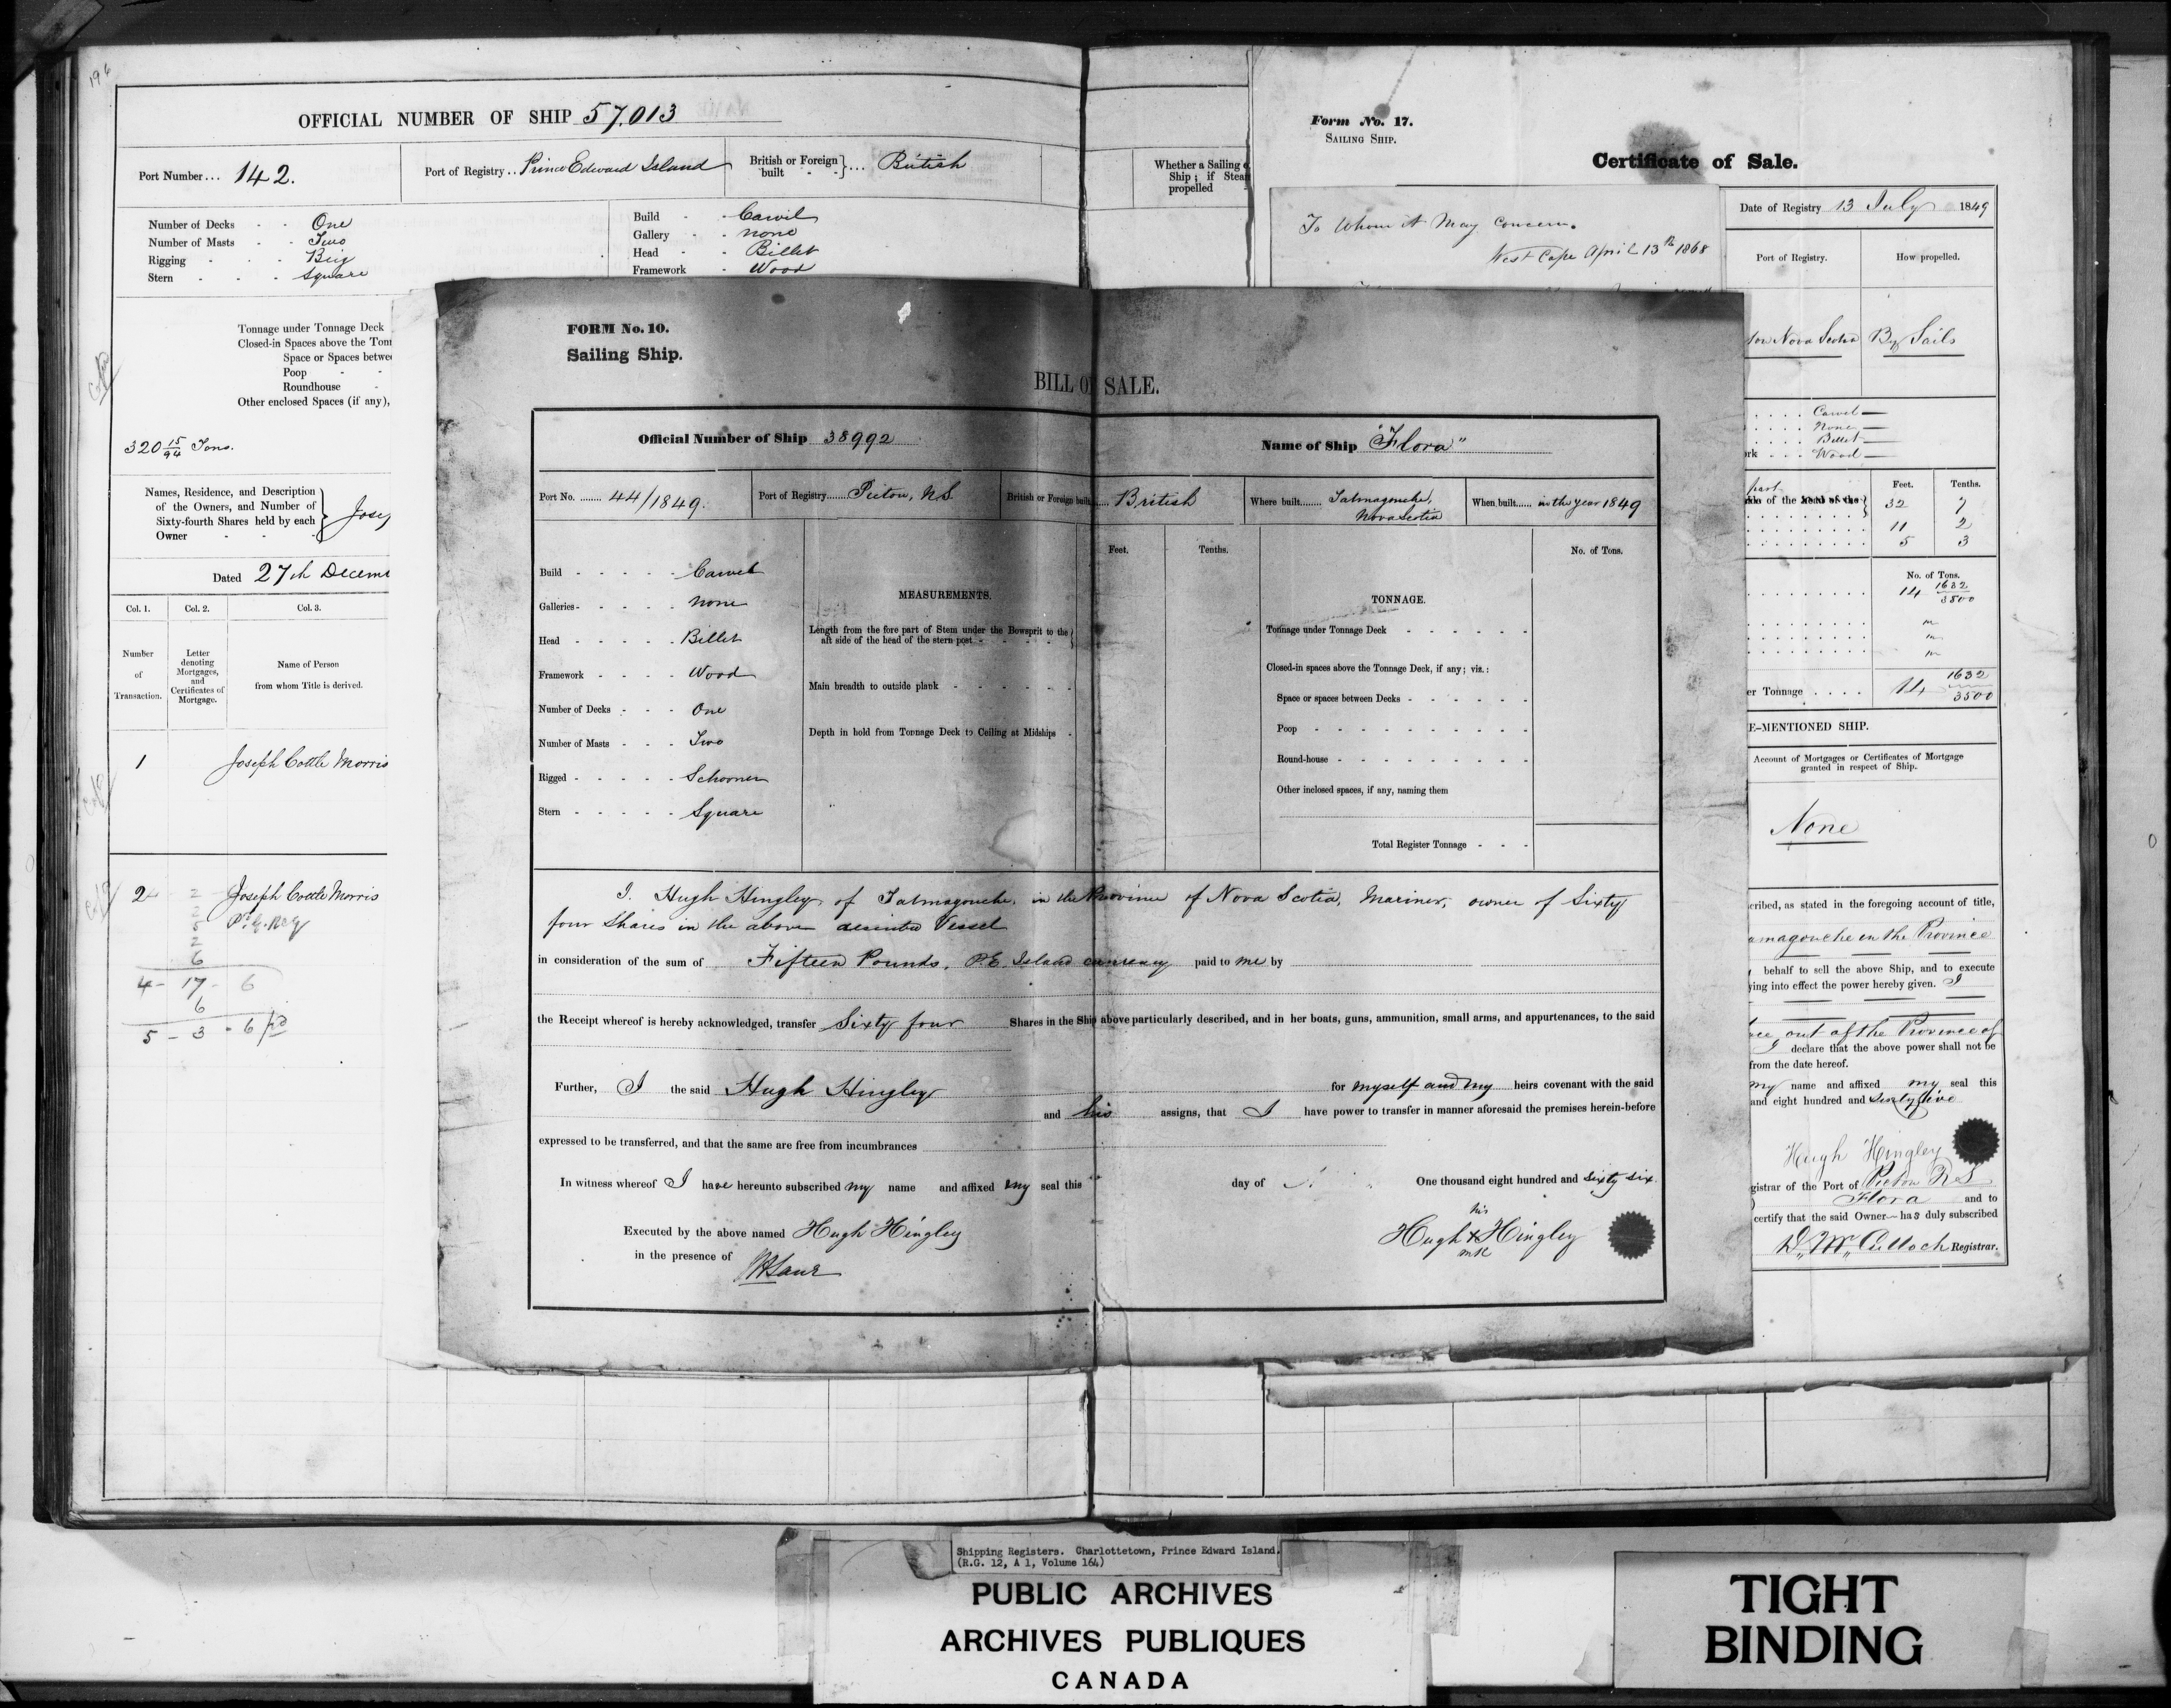 196
OFFICIAL NUMBER OF SHIP 57,013
Port Number... 142.
Port of Registry.. Prince Edward Island
British or Foreign built } ... British
Whether a Sailing
Ship; if Stea
propelled
Number of Decks - - One
Number of Masts - - Two
Rigging - - - Brig
Stern - - - Square
Build - - Carvil
Gallery - - none
Head - - Billet
Framework - Wood
Tonnage under Tonnage Deck
Closed-in Spaces above the Ton
Space or Spaces betwe
Poop - -
Roundhouse -
Other enclosed Spaces (if any),
320 15/94 Tons.
Names, Residence, and Description
of the Owners, and Number of
Sixty-fourth Shares held by each
Owner - - -
Jose
Dated 27th Decem
Col. 1. Col. 2. Col. 3.
Number of Transaction.
Letter denoting Mortgages, and Certificates of Mortgage.
Name of Person from whom Title is derived.
1 Joseph Cottle Morris
2 Joseph Cottle Morris
2
2
5
2
6
4 - 17 - 6
6
5 - 3 - 6
FORM No. 10.
Sailing Ship.
BILL OF SALE.
Official Number of Ship 38992
Name of Ship "Flora"
Port No. ........ 44/1849.
Port of Registry....... Pictou, NS
British or Foreign built.... British
Where built....... Tatmagouche, Nova Scotia
When built...... in the year 1849
Build - - - - - Carvel
Galleries - - - - - none
Head - - - - - Billet
Framework - - - - Wood
Number of Decks - - - One
Number of Masts - - - Two
Rigged - - - - - Schooner
Stern - - - - - Square
MEASUREMENTS.
Feet. Tenths.
Length from the fore part of Stem under the Bowsprit to the
aft side of the head of the stern post - - - - -
Main breadth to outside plank - - - - - -
Depth in hold from Tonnage Deck to Ceiling at Midships -
TONNAGE.
No. of Tons.
Tonnage under Tonnage Deck - - - - - -
Closed-in spaces above the Tonnage Deck, if any; viz.:
Space or spaces between Decks - - - - - -
Poop - - - - - - - - - -
Round-house - - - - - - - - -
Other inclosed spaces, if any, naming them
Total Register Tonnage - - -
I. Hugh Hingley, of Tatmagouche, in the Province of Nova Scotia, Mariner, owner of Sixty
four Shares in the above described Vessel
in consideration of the sum of Fifteen Pounds, P.E. Island currency paid to me by
the Receipt whereof is hereby acknowledged, transfer Sixty four Shares in the Ship above particularly described, and in her boats, guns, ammunition, small arms, and appurtenances, to the said
Further, I the said Hugh Hingley for myself and my heirs covenant with the said
and his assigns, that I have power to transfer in manner aforesaid the premises herein-before
expressed to be transferred, and that the same are free from incumbrances
In witness whereof I have hereunto subscribed my name and affixed my seal this day of One thousand eight hundred and sixty six.
Executed by the above named Hugh Hingley
in the presence of
his
Hugh X Hingley
mk
Form No. 17.
SAILING SHIP.
Certificate of Sale.
To Whom it May Concern.
West Cape April 13th 1868
Date of Registry 13 July 1849
Port of Registry. How propelled.
tou Nova Scotia By Sails
. . . . Carvel
. . . . None
. . . . Billet
rk . . . Wood
part
Feet. Tenths.
32 7
11 2
5 3
No. of Tons.
14 1632/3500
er Tonnage . . . . 14 1632/3500
E-MENTIONED SHIP.
Account of Mortgages or Certificates of Mortgage
granted in respect of Ship.
None
cribed, as stated in the foregoing account of title,
amagouche in the Province
behalf to sell the above Ship, and to execute
ying into effect the power hereby given. I
out of the Province of
I declare that the above power shall not be
from the date hereof.
my name and affixed my seal this
and eight hundred and sixty five
Hugh Hingley
gistrar of the Port of Pictou
Flora and to
certify that the said Owner has duly subscribed
D. McCulloch Registrar.
Shipping Registers. Charlottetown, Prince Edward Island.
(R.G. 12, A 1, Volume 164)
PUBLIC ARCHIVES
ARCHIVES PUBLIQUES
CANADA
TIGHT
BINDING